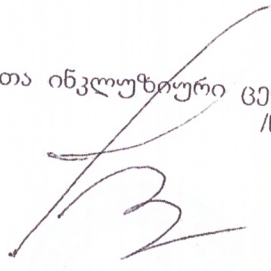 თა ინკლუზიური ცე
/